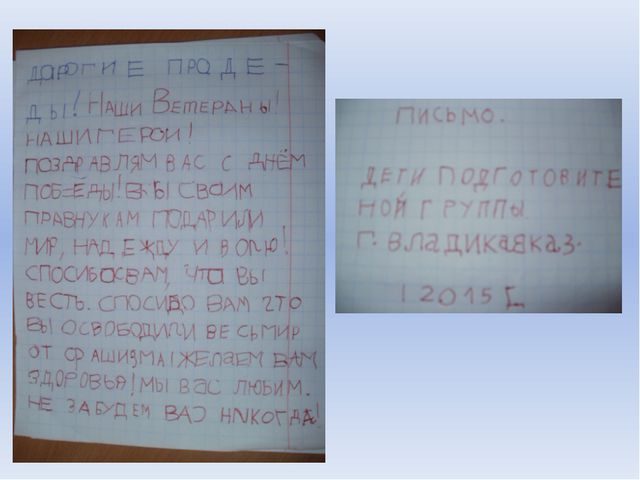 ДАРОГИЕ ПРАДЕ-
ДЫ! НАШИ ВЕТЕРАНЫ!
НАШИ ГЕРОИ!
ПОЗДРАВЛЯМ ВАС С ДНЁМ
ПОБЕДЫ! ВЫ СВОИМ
ПРАВНУКАМ ПОДАРИЛИ
МИР, НАДЕЖДУ И ВОЛЮ!
СПОСИБО ВАМ, ЧТО ВЫ
ВЕСТЬ. СПОСИБО ВАМ ЧТО
ВЫ ОСВОБОДИЛИ ВЕСЬ МИР
ОТ ФАШИЗМА! ЖЕЛАЕМ ВАМ
ЗДОРОВЬЯ! МЫ ВАС ЛЮБИМ.
НЕ ЗАБУДЕМ ВАС НИКОГДА!
ПИСЬМО.
ДЕТИ ПОДГОТОВИТЕ
НОЙ ГРУППЫ
Г. ВЛАДИКАВКАЗ.
2015 Г.